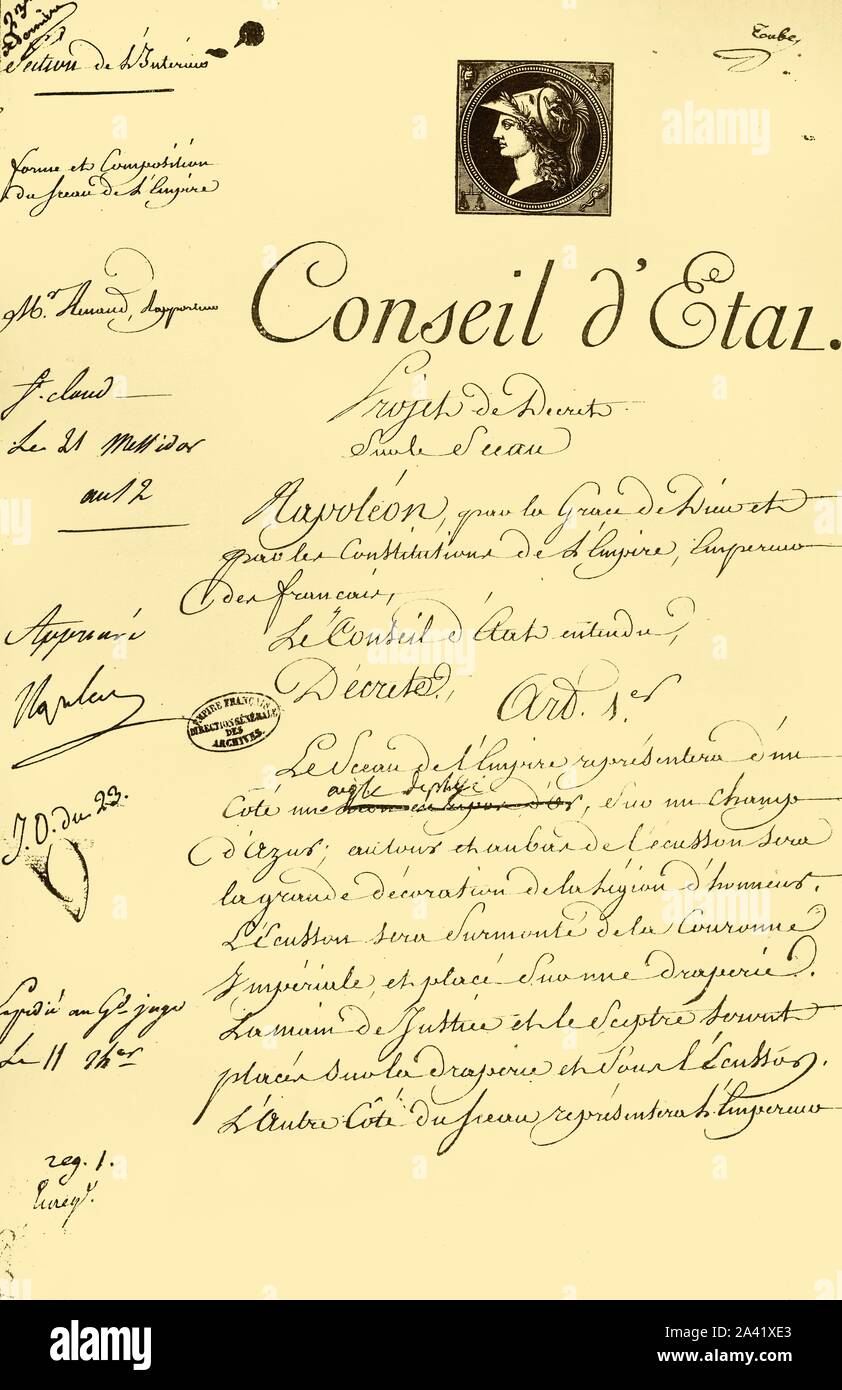 Section de l'Intérieur
forme et Composition
du sceau de l'Empire
Mr. Renaud, Rapporteur
St. cloud
Le 21 Messidor
an 12
Approuvé
J.O. du 23.
Expédié au Gd. juge
Le 11 Ther
reg. 1.
Conseil d'Etat.
Projet de Décret
Sur le Sceau
Napoléon, par la Grace de Dieu et
par les Constitutions de l'Empire, Empereur
des français,
Le Conseil d'État entendu,
Décrete,
EMPIRE FRANÇAIS
DIRECTION GÉNÉRALE
DES
ARCHIVES.
Art. 1.er
Le Sceau de l'Empire représentera d'un
aigle déployé
Coté un d'or, sur un champ
d'Azur; autour et au bas de l'écusson sera
la grande décoration de la Légion d'honneur.
L'Écusson sera Surmonté de la Couronne
Impériale, et placé Sur une draperie.
La main de Justice et le Sceptre seront
placés sur la draperie et sous l'Écusson.
L'Autre Côté du sceau représentera l'Empereur
alamy
Image ID: 2A41XE3
www.alamy.com